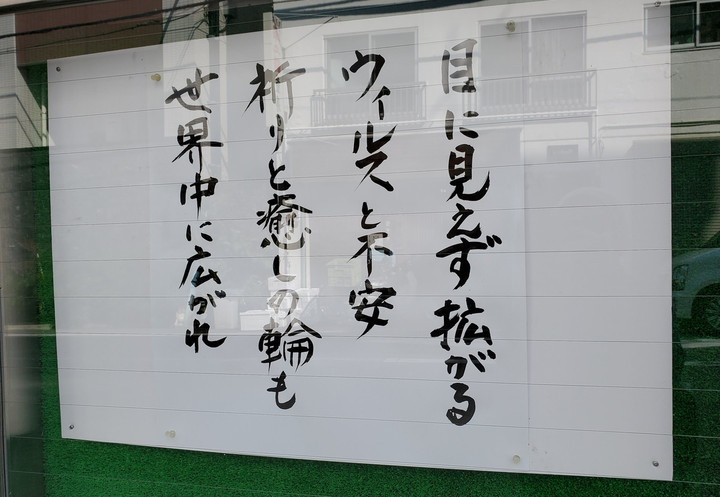 目に見えず拡がる
ウィルスと不安
祈りと癒しの輪も
世界中に広がれ